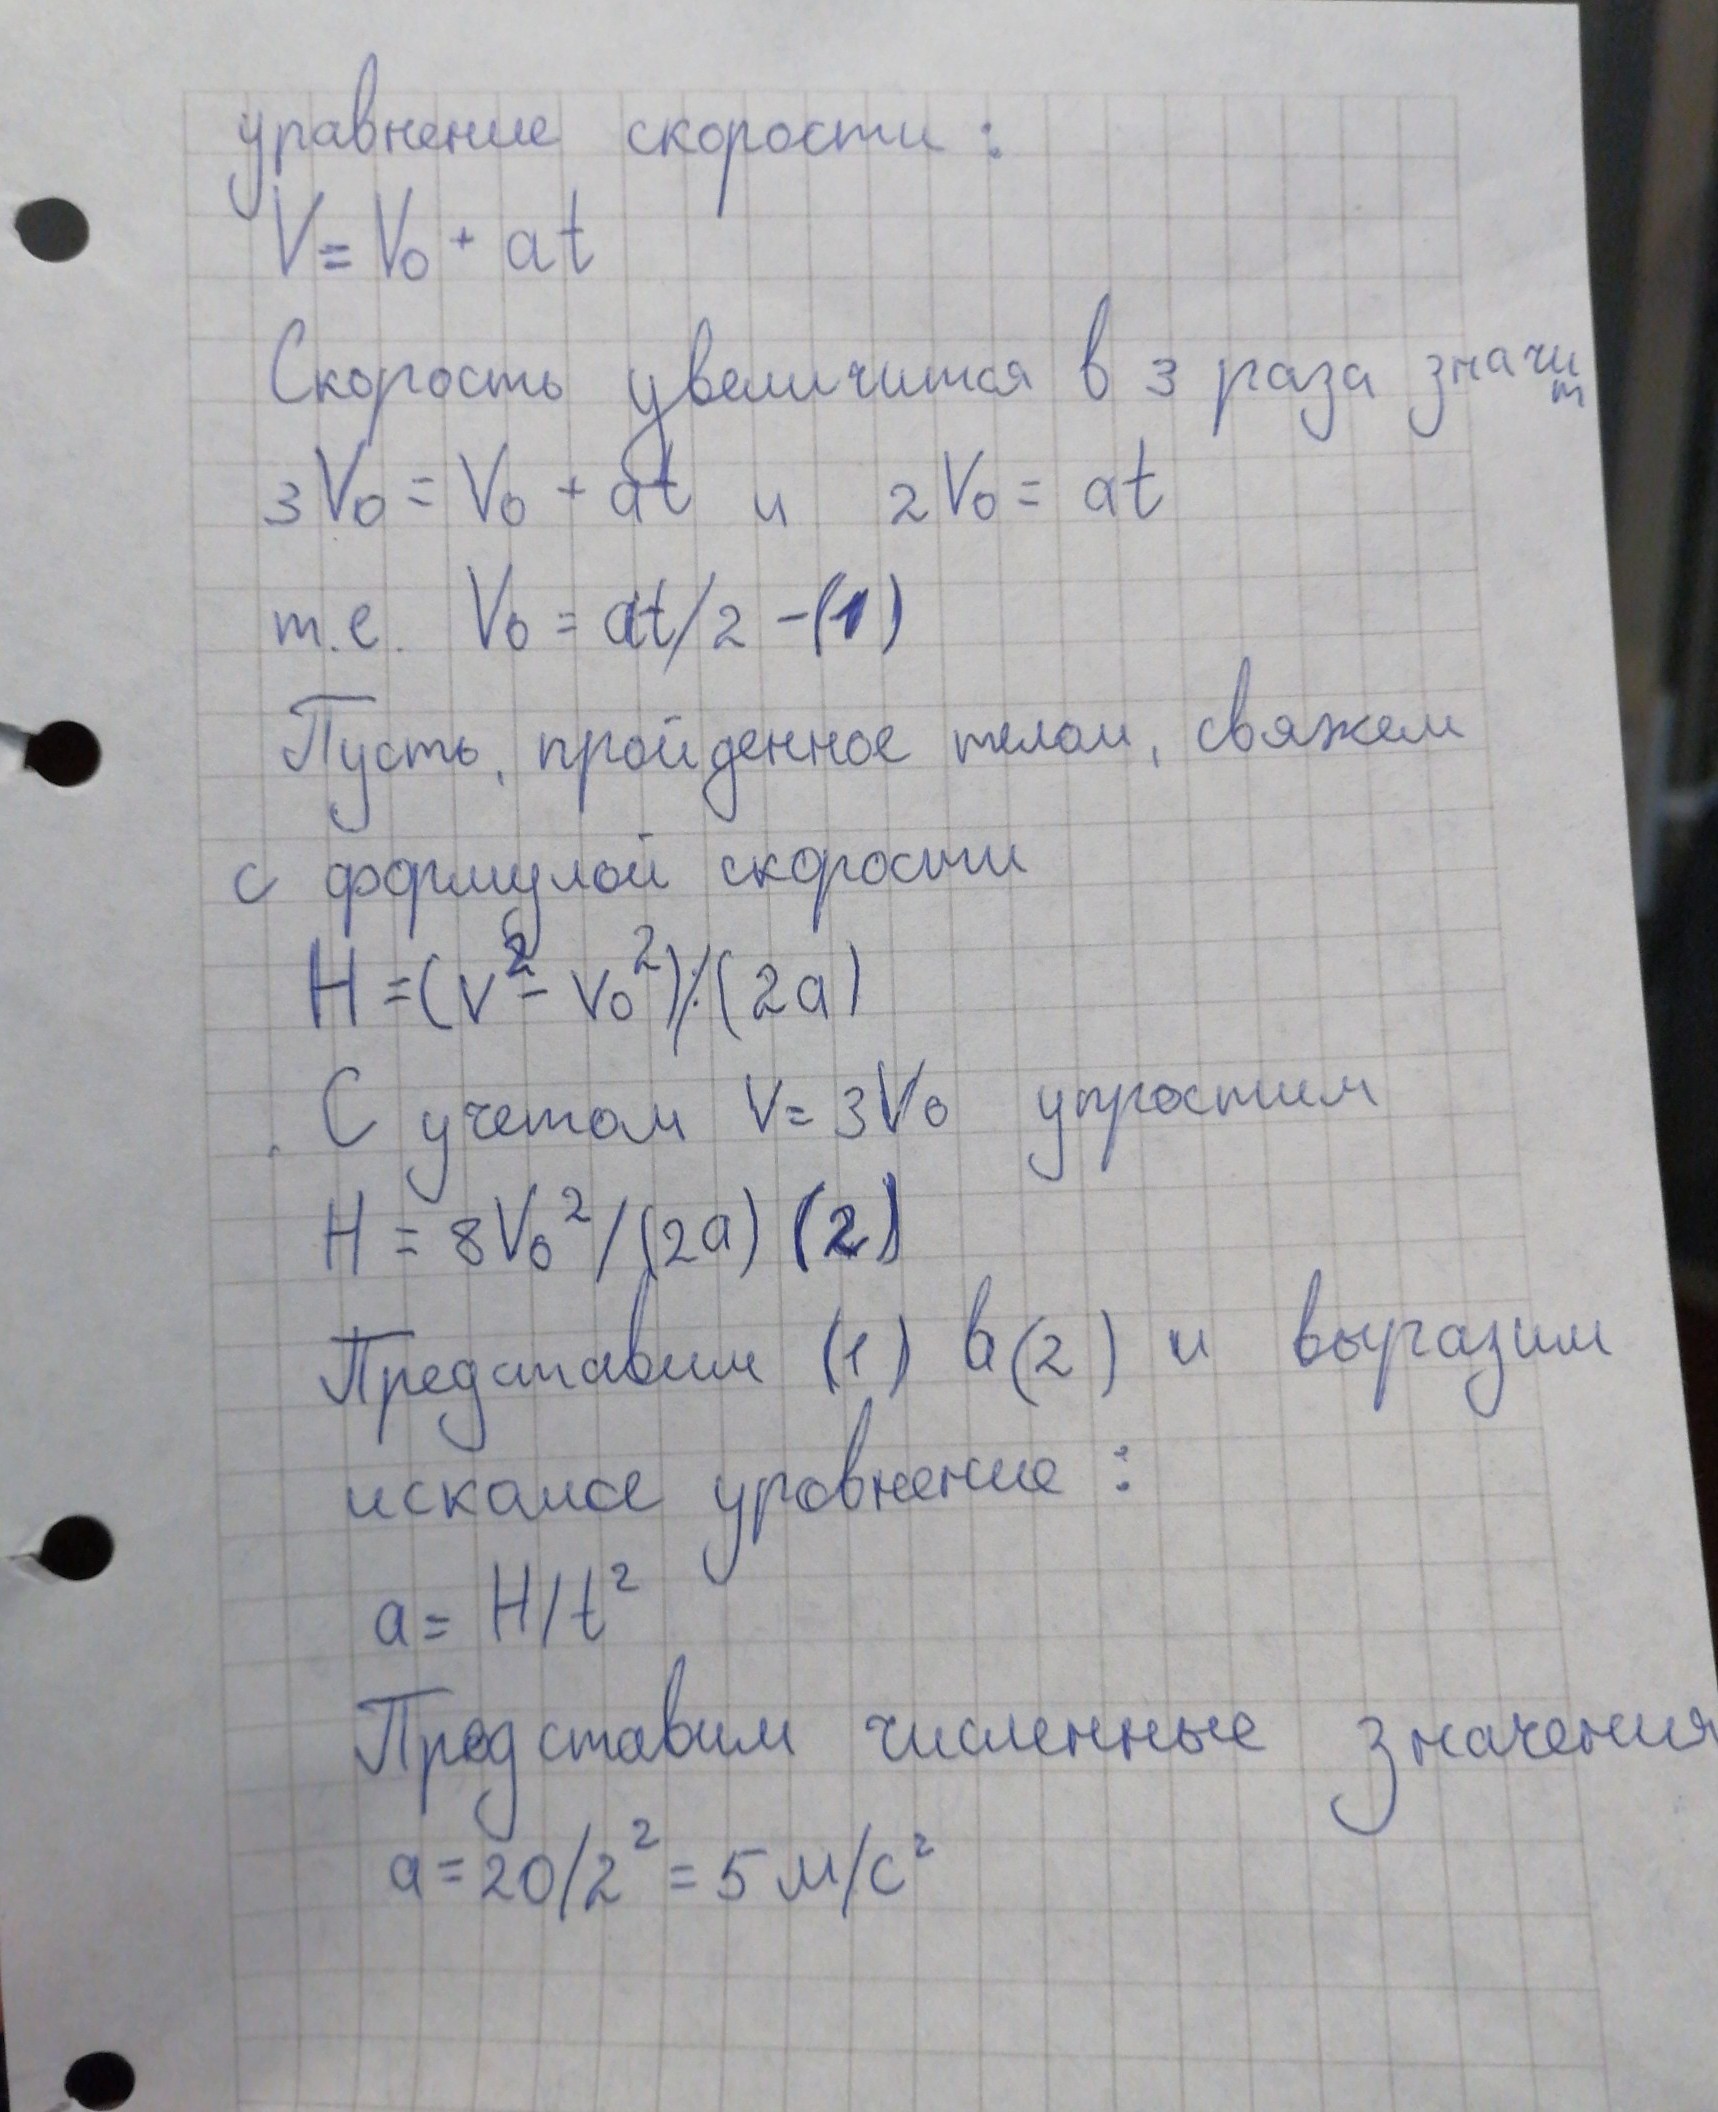 уравнение скорости:
V = V₀ + at
Скорость увеличится в 3 раза значит
3V₀ = V₀ + at и 2V₀ = at
т.е. V₀ = at/2 -(1)
Пусть, пройденное телом, свяжем
с формулой скорости
H = (V² - V₀²)/(2a)
С учетом V = 3V₀ упростим
H = 8V₀²/(2a) (2)
Представим (1) в (2) и выразим
искомое уровнение:
a = H/t²
Представим численные значения
a = 20/2² = 5 м/с²